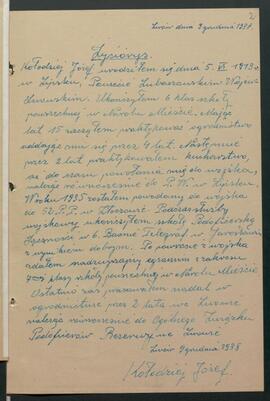 2
Lwów dnia 9 grudnia 1938.
Życiorys.
Kołodziej Józef urodziłem się dnia 5. VI. 1913 r.
w Lipsku, Powiecie Lubaczowskim Wojew.
Lwowskim. Ukończyłem 6 klas szkoły
powszechnej w Narolu Mieście. Mając
lat 15 zacząłem praktykować ogrodnictwo
oddając mu się przez 4 lat. Następnie
przez 2 lat praktykowałem kucharstwo,
aż do czasu powołania mię do wojska,
należąc równocześnie do P. W. w Lipsku.
W roku 1935 zostałem powołany do wojska
do 52. P. P. w Złoczowie
wojskowy ukończyłem szkołę Podoficerską
Łączności w 6. Baonie Telegraf. w Jarosławiu
z wynikiem dobrym. Po powrocie z wojska
zdałem egzamin z zakresu
7-miu klas szkoły powszechnej w Narolu Mieście
Ostatnio zaś pracowałem nadal w
ogrodnictwie przez 2 lata we Lwowie
należąc równocześnie do Ogólnego Związku
Podoficerów Rezerwy we Lwowie
Lwów 9 grudnia 1938
Kołodziej Józef.